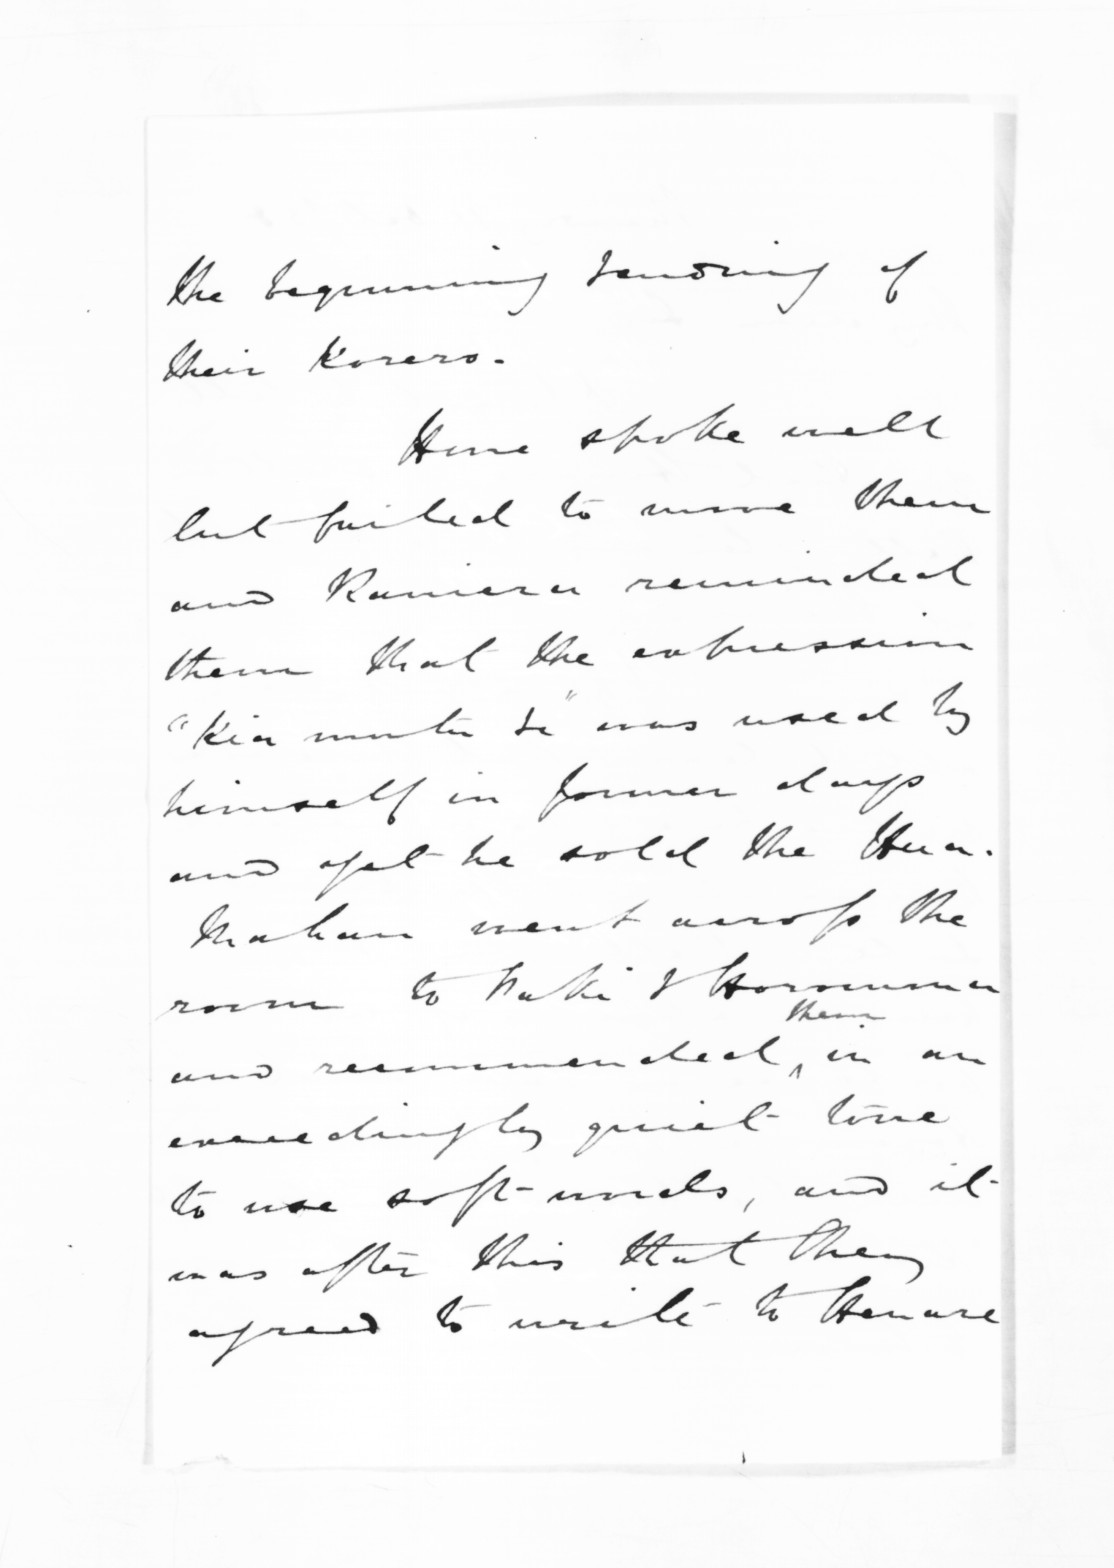 the beginning & ending of
their Korero.
Hine spoke well
but failed to move them
and Raniera reminded
them that the expression
"Kia mutu ti" was used by
himself in former days
and yet he sold the Hua.
Mahau went across the
room to & Horomona
and recommended ^them in an
exceedingly quiet tone
to use soft words, and it
was after this that they
agreed to write to Henare